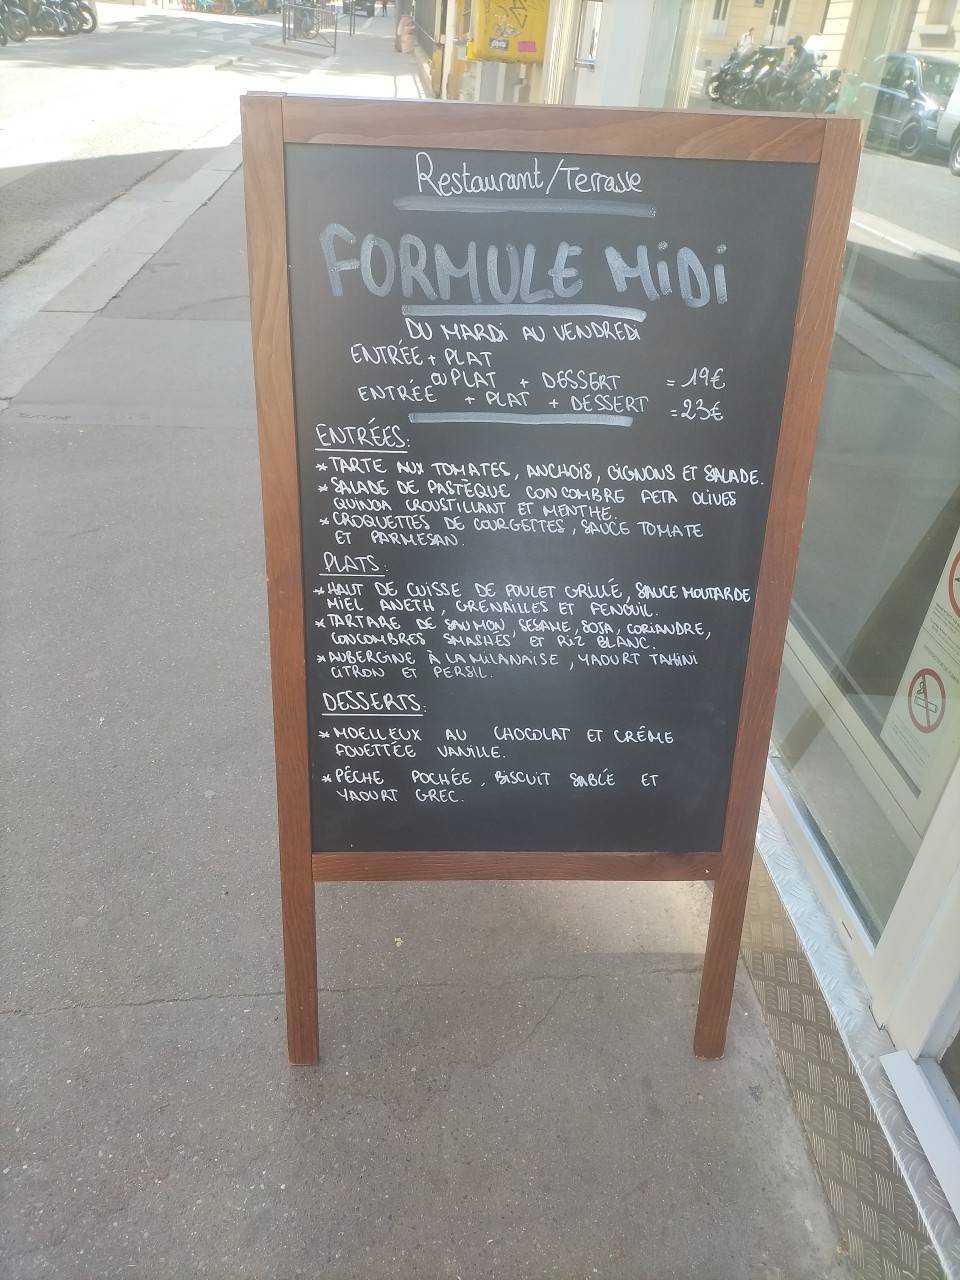 Restaurant/Terrasse
FORMULE MiDi
DU MARDi AU VENDREDi
ENTRÉE + PLAT
OU PLAT + DESSERT = 19€
ENTRÉE + PLAT + DESSERT = 23€
ENTRÉES:
* TARTE AUX TOMATES, ANCHOIS, OIGNONS ET SALADE.
* SALADE DE PASTÈQUE CONCOMBRE FETA OLIVES
QUINOA CROUSTILLANT ET MENTHE.
* CROQUETTES DE COURGETTES, SAUCE TOMATE
ET PARMESAN.
PLATS:
* HAUT DE CUISSE DE POULET GRILLÉ, SAUCE MOUTARDE
MIEL ANETH, GRENAILLES ET FENOUIL.
* TARTARE DE SAUMON, SESAME, SOJA, CORIANDRE,
CONCOMBRES SMASHÉS ET RIZ BLANC.
* AUBERGINE À LA MILANAISE, YAOURT TAHINI
CITRON ET PERSIL.
DESSERTS:
* MOELLEUX AU CHOCOLAT ET CRÊME
FOUETTÉE VANILLE.
* PÊCHE POCHÉE, BISCUIT SABLÉ ET
YAOURT GREC.